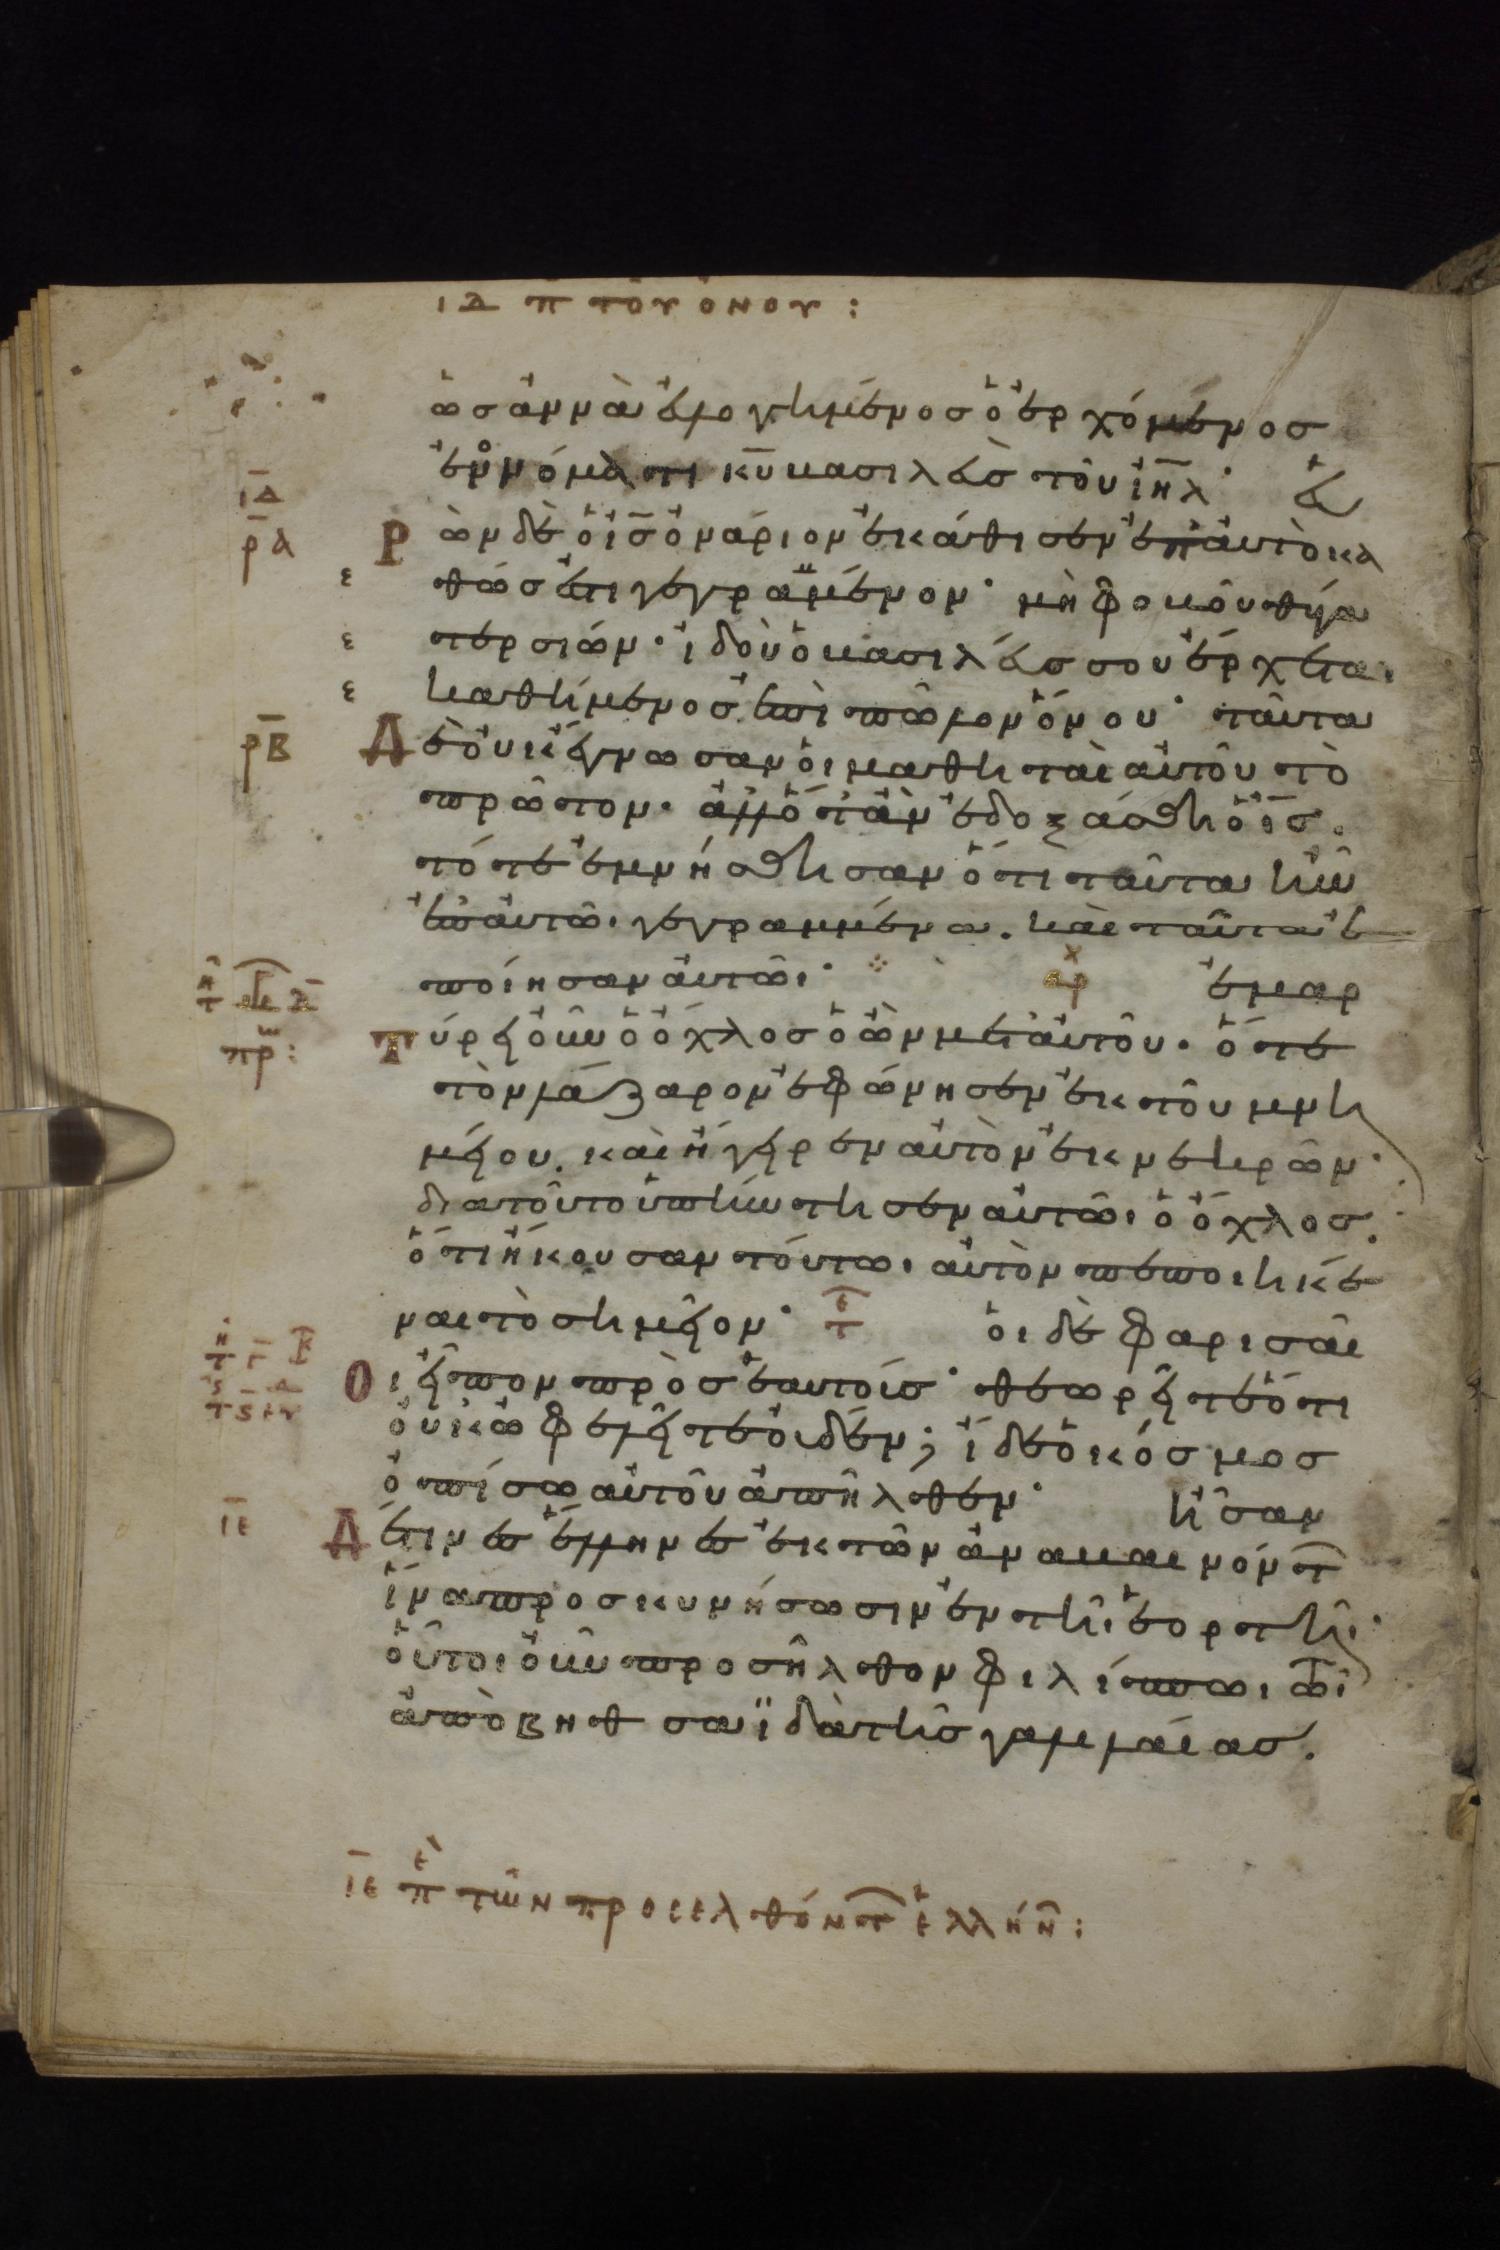 ΙΔ π τοῦ ὄνου :
ὡσαννὰ εὐλογημένος ὁ ἐρχόμενος
ἐν ὀνόματι κυ βασιλεὺς τοῦ ιηλ · εὑ
ΙΔ
ρα
Ρ ὼν δὲ ὁ ις ὀνάριον ἐκάθισεν ἐπ αὐτὸ κα
θώς ἐστι γεγραμμένον · μὴ φοβοῦ θύγα
τερ σιών · ἰδοὺ ὁ βασιλεύς σου ἔρχεται
καθήμενος ἐπὶ πῶλον ὄνου · ταῦτα
ρβ
Δ ὲ οὐκ ἔγνωσαν οἱ μαθηταὶ αὐτοῦ τὸ
πρῶτον · ἀλλ ὅταν ἐδοξάσθη ὁ ις .
τότε ἐμνήσθησαν ὅτι ταῦτα ἦν
ἐπ αὐτῶι γεγραμμένα . καὶ ταῦτα ἐ
ποίησαν αὐτῶι · αρχ ἐμαρ
Τ ύρει οὖν ὁ ὄχλος ὁ ὢν μετ αὐτοῦ · ὅτε
τὸν λάζαρον ἐφώνησεν ἐκ τοῦ μνη
μείου . καὶ ἤγειρεν αὐτὸν ἐκ νεκρῶν ·
διατοῦτο ὑπήντησεν αὐτῶι ὁ ὄχλος .
ὅτι ἤκουσαν τοῦτω αὐτὸν πεποιηκέ
ναι τὸ σημεῖον · οἱ δὲ φαρισαῖ
Ο ι εἶπον πρὸς ἑαυτοίς · θεωρεῖτε ὅτι
οὐκ ὠφελεῖτε οὐδέν ; ἴδε ὁ κόσμος
ὀπίσω αὐτοῦ ἀπῆλθεν · ἦσαν
ΙΕ
Δ έ τινες ἕλληνες ἐκ τῶν ἀναβαινόντ
ἵνα προσκυνήσωσιν ἐν τῆι ἑορτῆι ·
οὗτοι οὖν προσῆλθον φιλίππωι τῶι
ἀπὸ βηθσαϊδὰ τῆς γαλιλαίας .
ΙΕ πε τῶν προσελθόντ ἑλλήν :